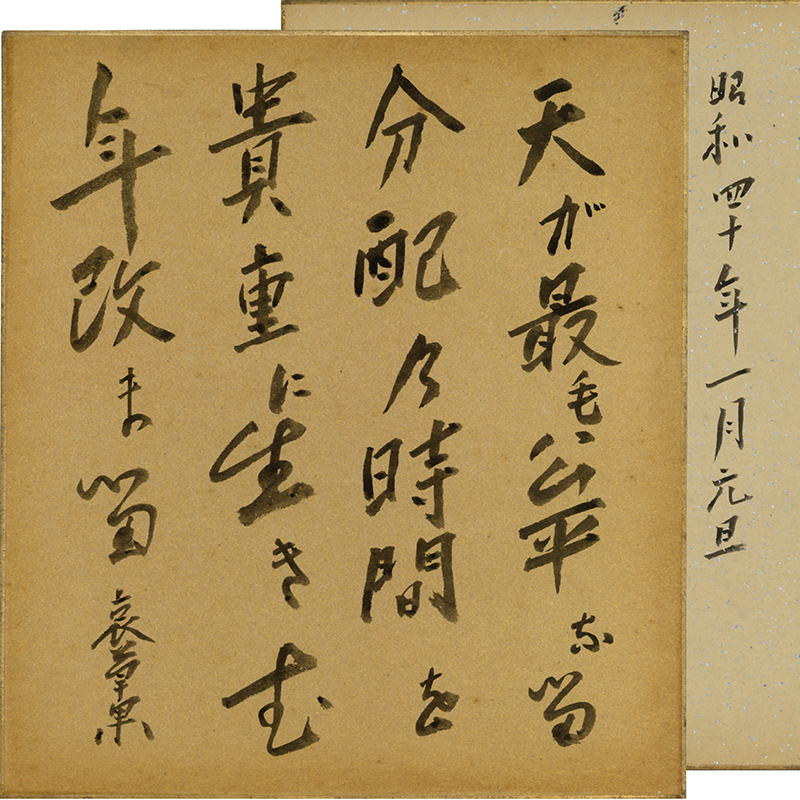 昭和四十年一月元旦
天が最毛公平な留
分配乃時間を
貴重に生き武
年改ま留 哀草果